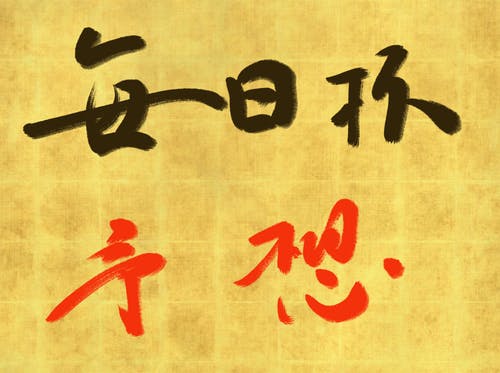 毎日杯
予想